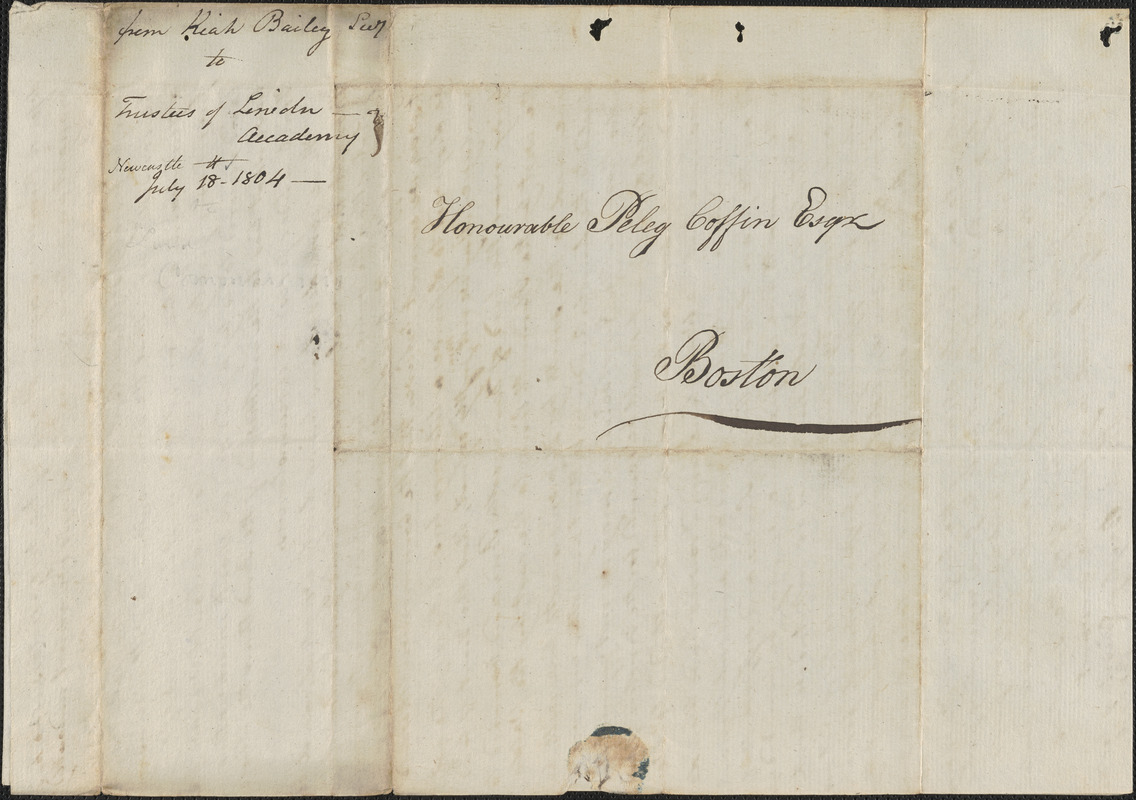 from Kiah Bailey Secy
to
Trustees of Lincoln
Academy
Newcastle
July 18 - 1804 —
Honourable Peleg Coffin Esqr
Boston